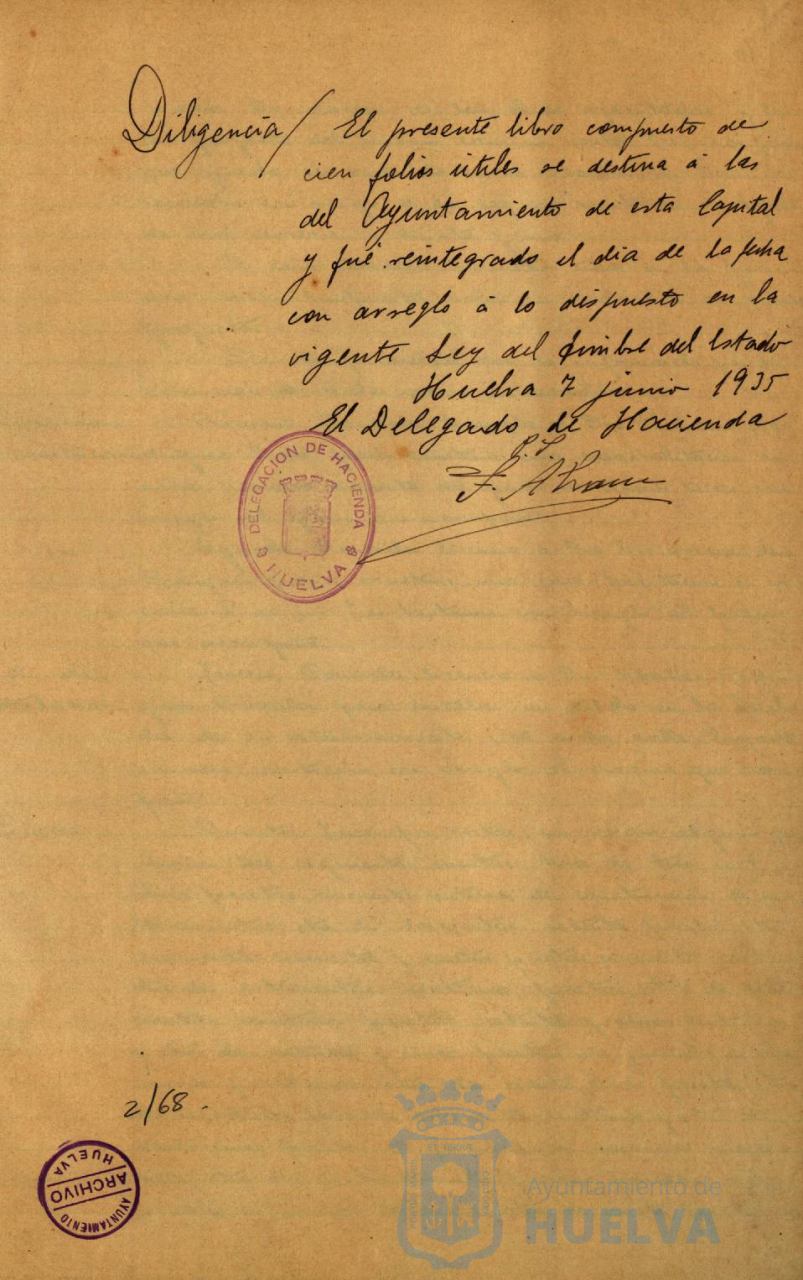 Diligencia/ El presente libro compuesto de
cien folios útiles se destina á las
del Ayuntamiento de esta Capital
y fué reintegrado el dia de la fecha
con arreglo á lo dispuesto en la
vigente Ley del timbre del Estado
Huelva 7 junio 1935
El Delegado de Hacienda
F.
DELEGACION DE HACIENDA
HUELVA
2/68.
AYUNTAMIENTO
ARCHIVO
HUELVA
Ayuntamiento de
HUELVA